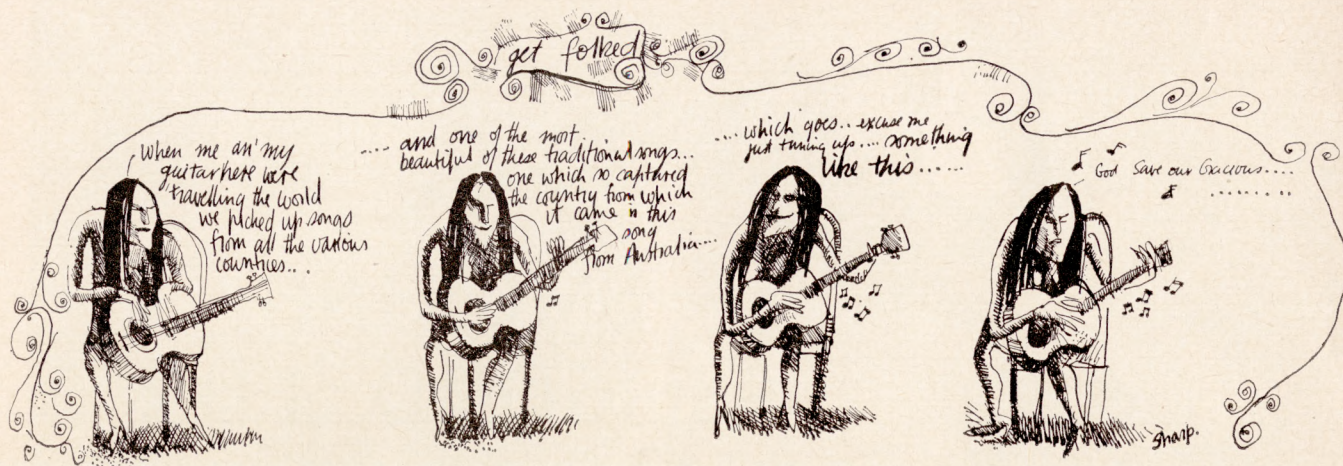 get folked
when me an' my
guitar here were
travelling the world
we picked up songs
from all the various
countries...
.... and one of the most
beautiful of these traditional songs...
one which so captured
the country from which
it came is this
song
from Australia....
.... which goes.. excuse me
just tuning up.... something
like this......
God Save our Gracious....
........
Sharp.